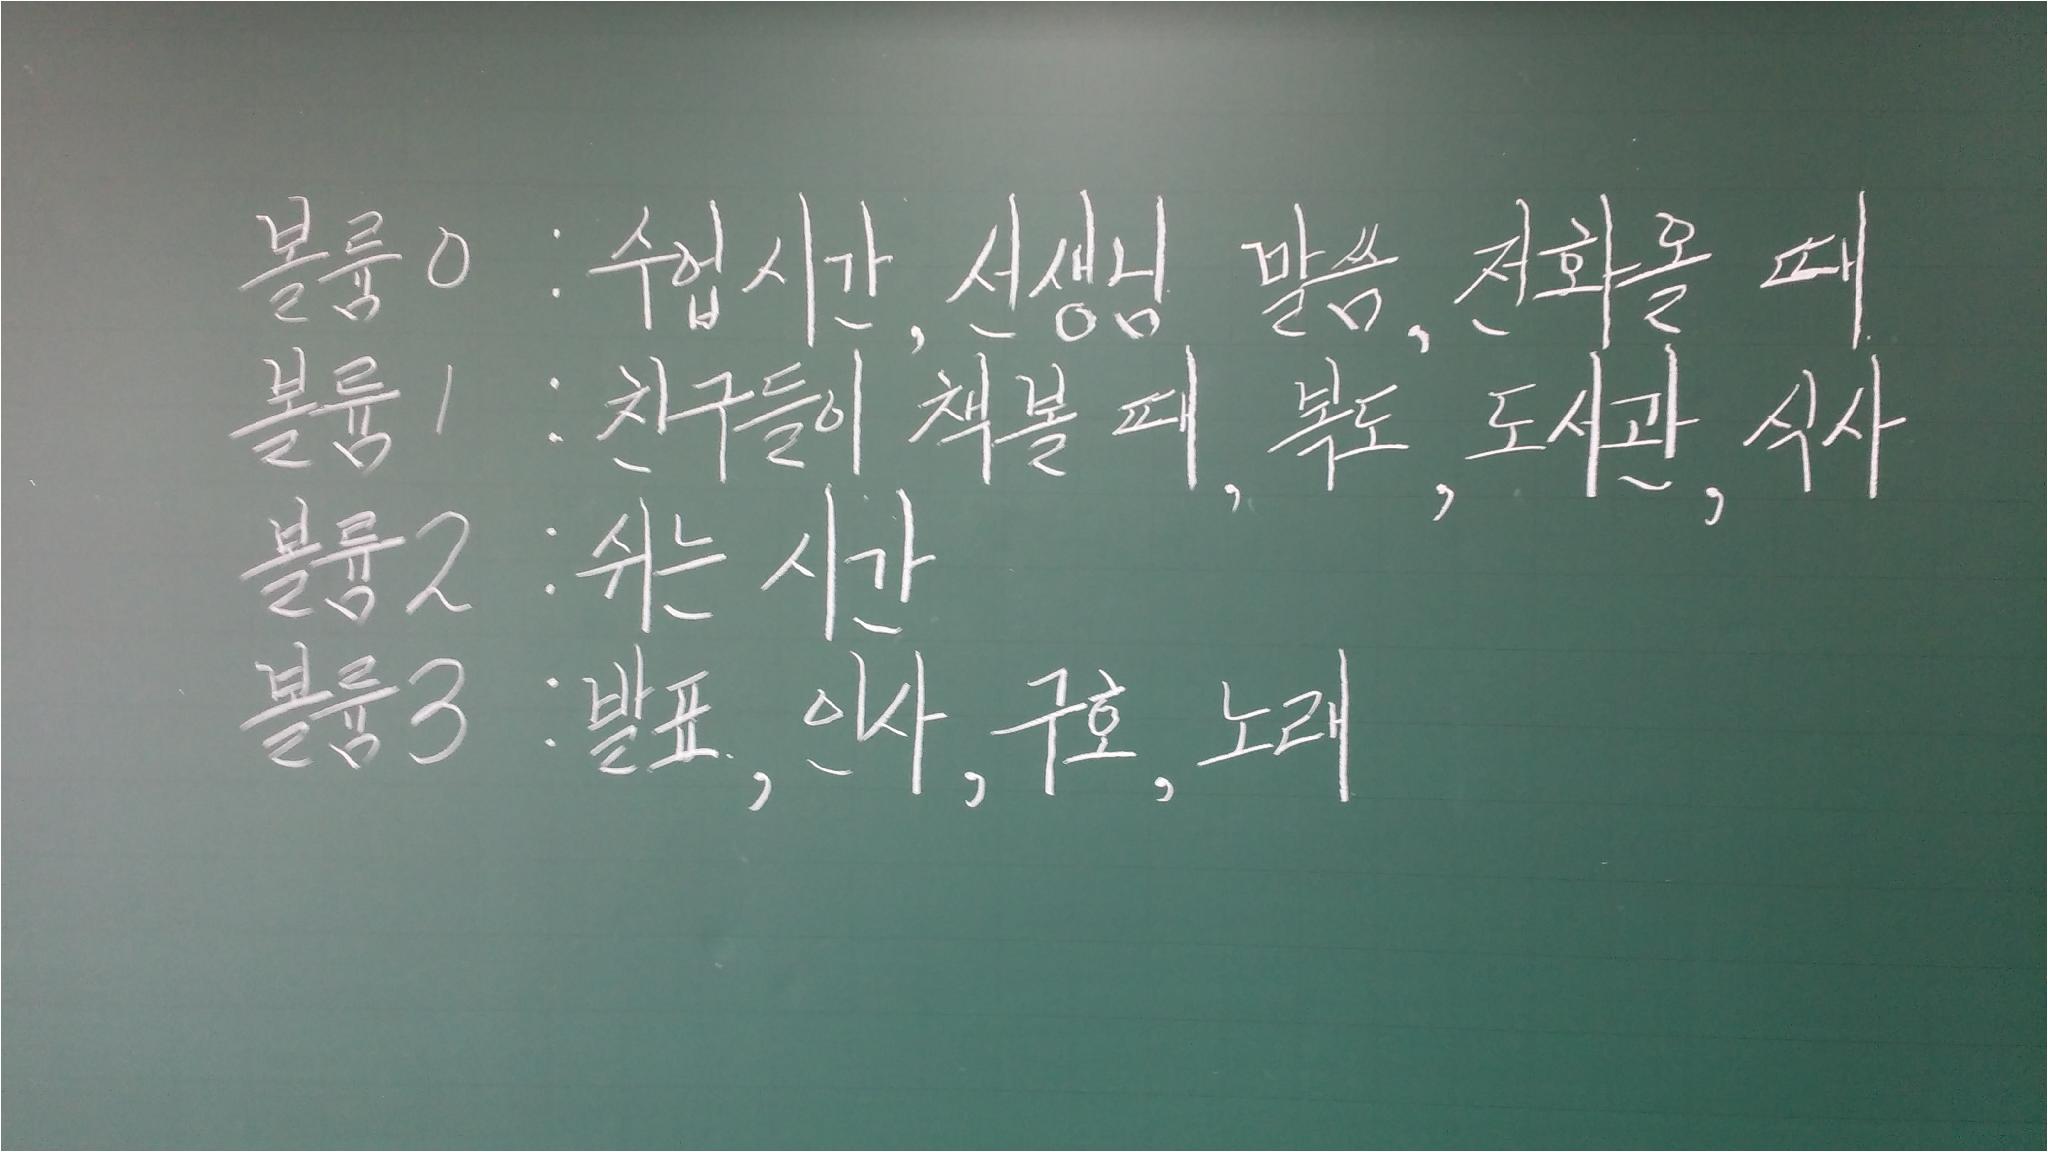 볼륨0 : 수업시간, 선생님 말씀, 전화올 때
볼륨1 : 친구들이 책볼 때, 복도, 도서관, 식사
볼륨2 : 쉬는 시간
볼륨3 : 발표, 인사, 구호, 노래